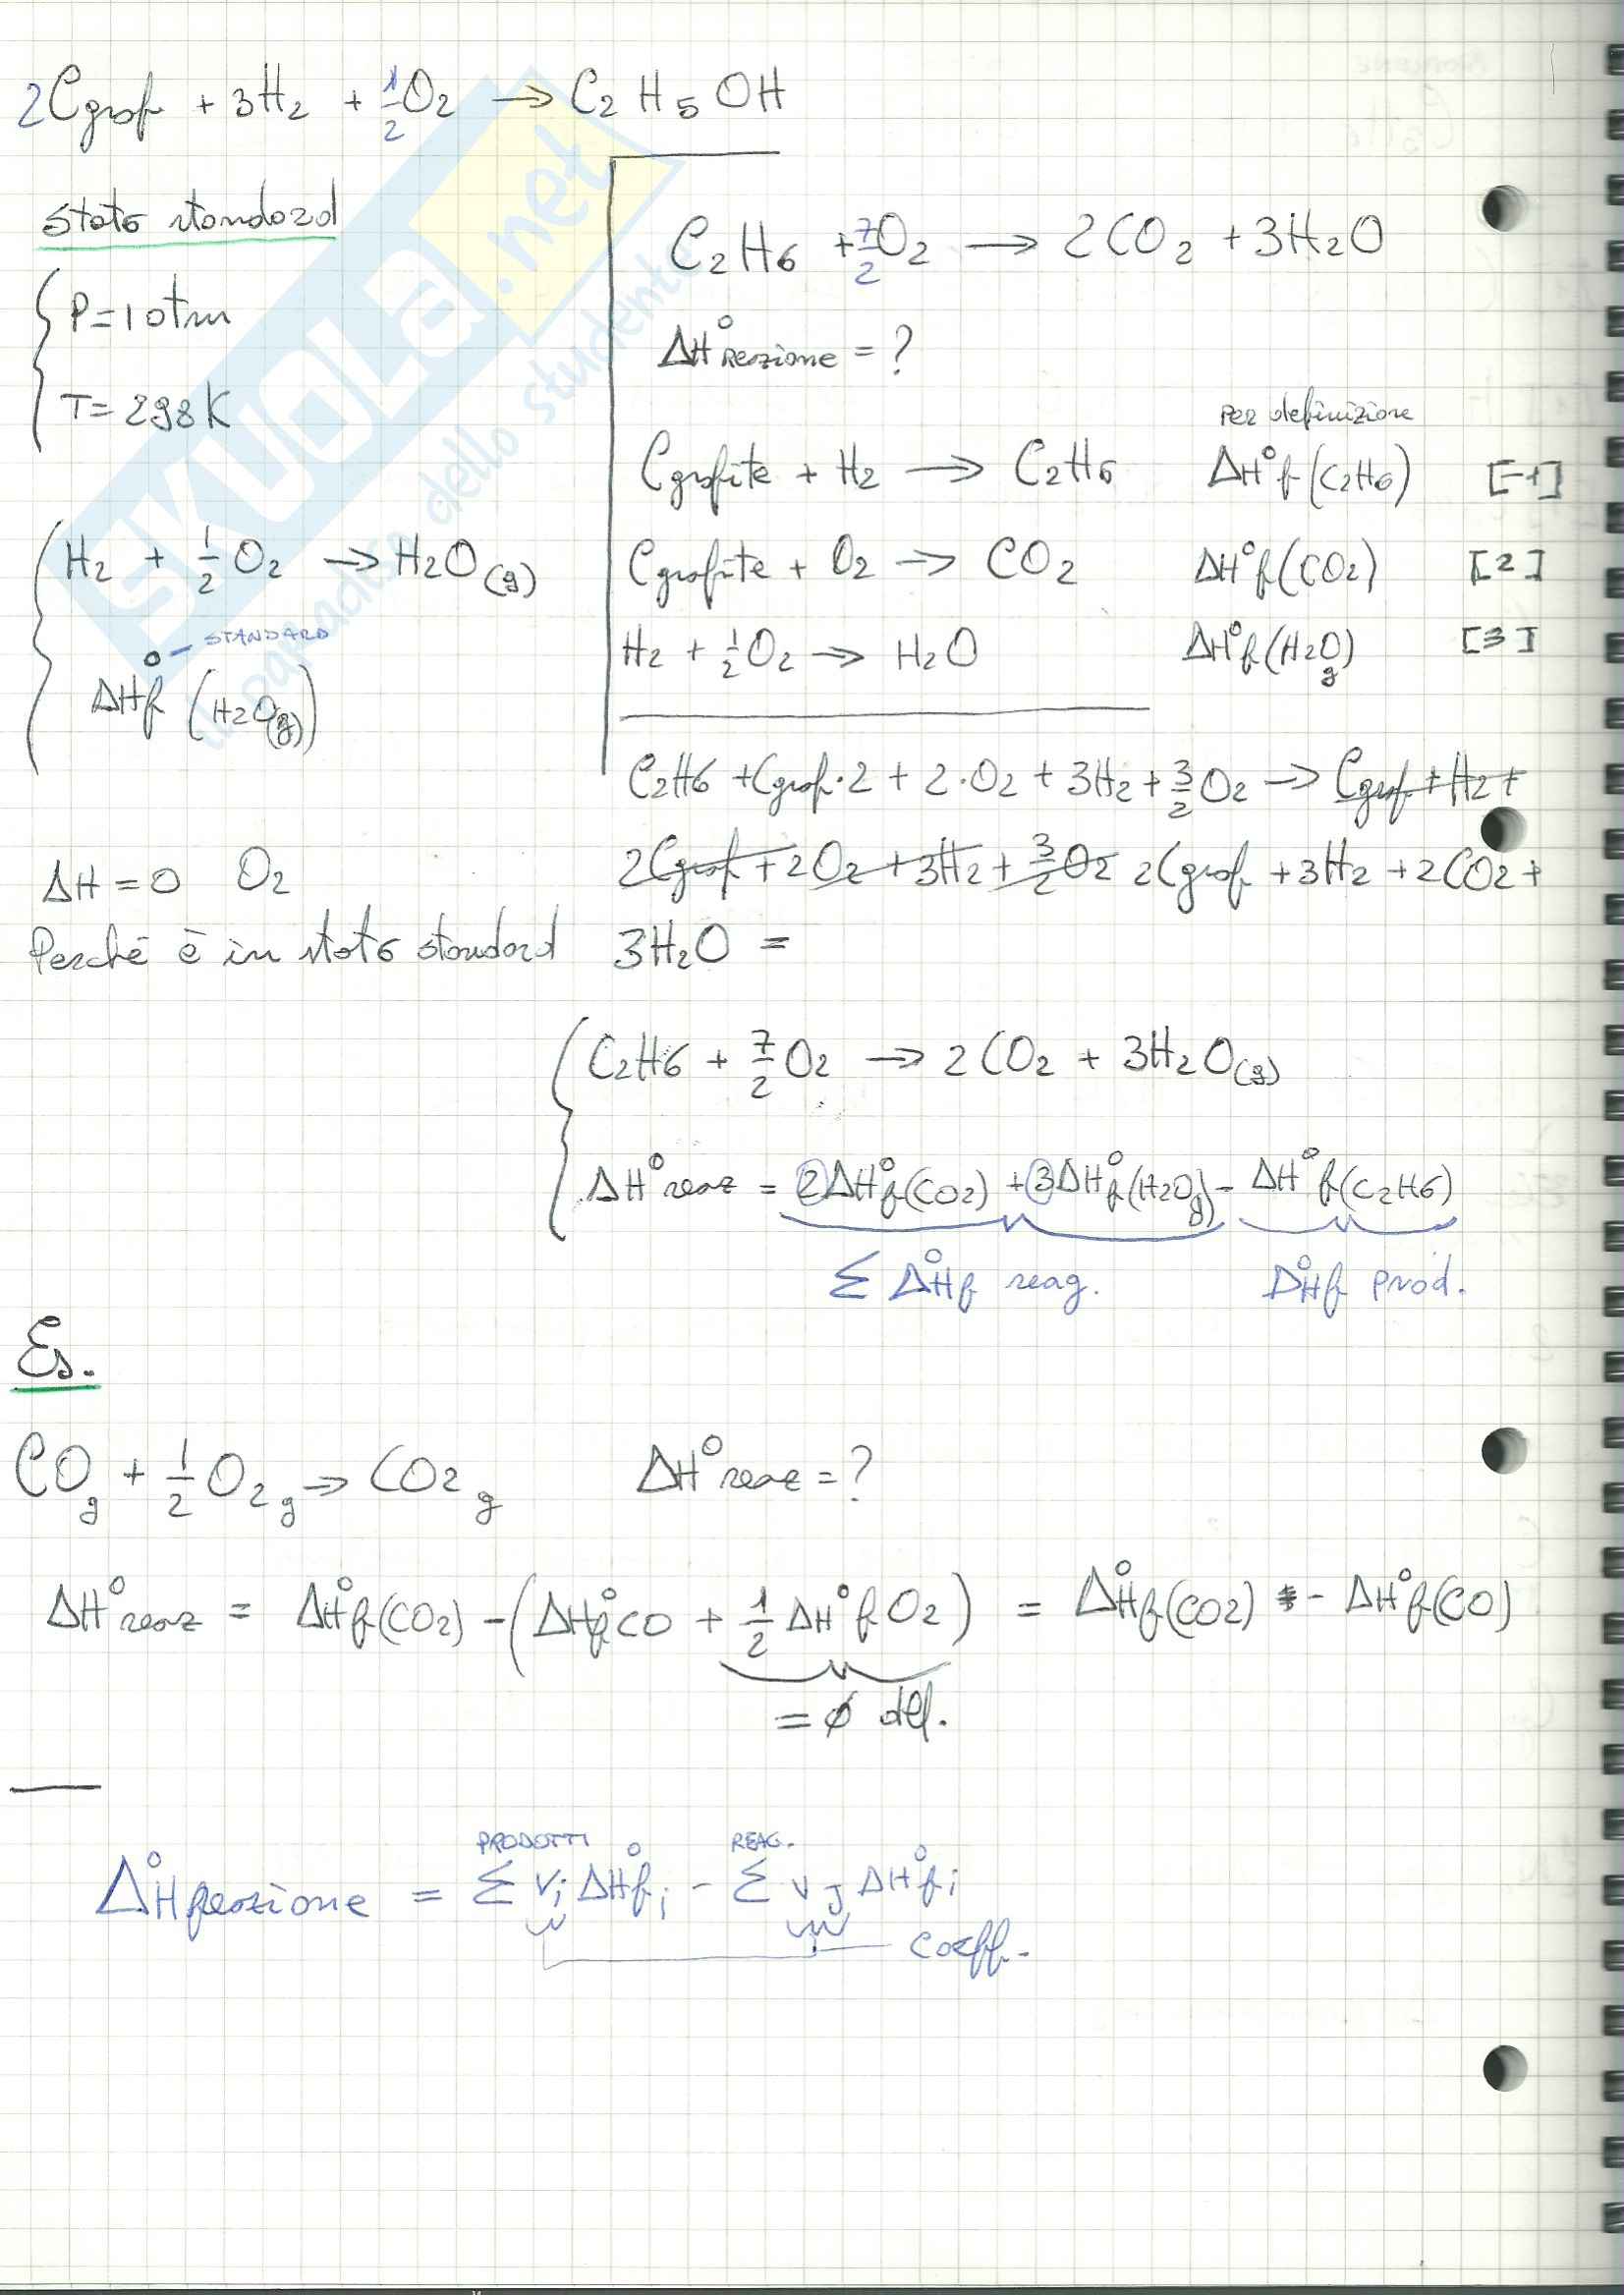 2Cgraf + 3H₂ + 1/2 O₂ → C₂H₅OH
Stato standard
P=1 atm
T=298K
H₂ + 1/2 O₂ → H₂O(g)
° – STANDARD
ΔHf (H₂O(g))
ΔH=0 O₂
Perché è in stato standard
C₂H₆ + 7/2 O₂ → 2CO₂ + 3H₂O
ΔH°reazione = ?
Per definizione
Cgrafite + H₂ → C₂H₆ ΔH°f(C₂H₆) [-1]
Cgrafite + O₂ → CO₂ ΔH°f(CO₂) [2]
H₂ + 1/2 O₂ → H₂O ΔH°f(H₂Og) [3]
C₂H₆ + Cgraf·2 + 2·O₂ + 3H₂ + 3/2 O₂ → Cgraf + H₂ +
2Cgraf + 2O₂ + 3H₂ + 3/2 O₂ 2Cgraf + 3H₂ + 2CO₂ +
3H₂O =
C₂H₆ + 7/2 O₂ → 2CO₂ + 3H₂O(g)
ΔH°reaz = 2ΔH°f(CO₂) + 3ΔH°f(H₂Og) - ΔH°f(C₂H₆)
Σ ΔH°f reag. ΔH°f prod.
Es.
COg + 1/2 O₂g → CO₂g ΔH°reaz = ?
ΔH°reaz = ΔH°f(CO₂) - (ΔH°fCO + 1/2 ΔH°fO₂) = ΔH°f(CO₂) - ΔH°f(CO)
= ∅ def.
PRODOTTI REAG.
ΔH°reazione = Σ νi ΔH°fi - Σ νJ ΔH°fi
coeff.
SKUOLA.net
dello studente